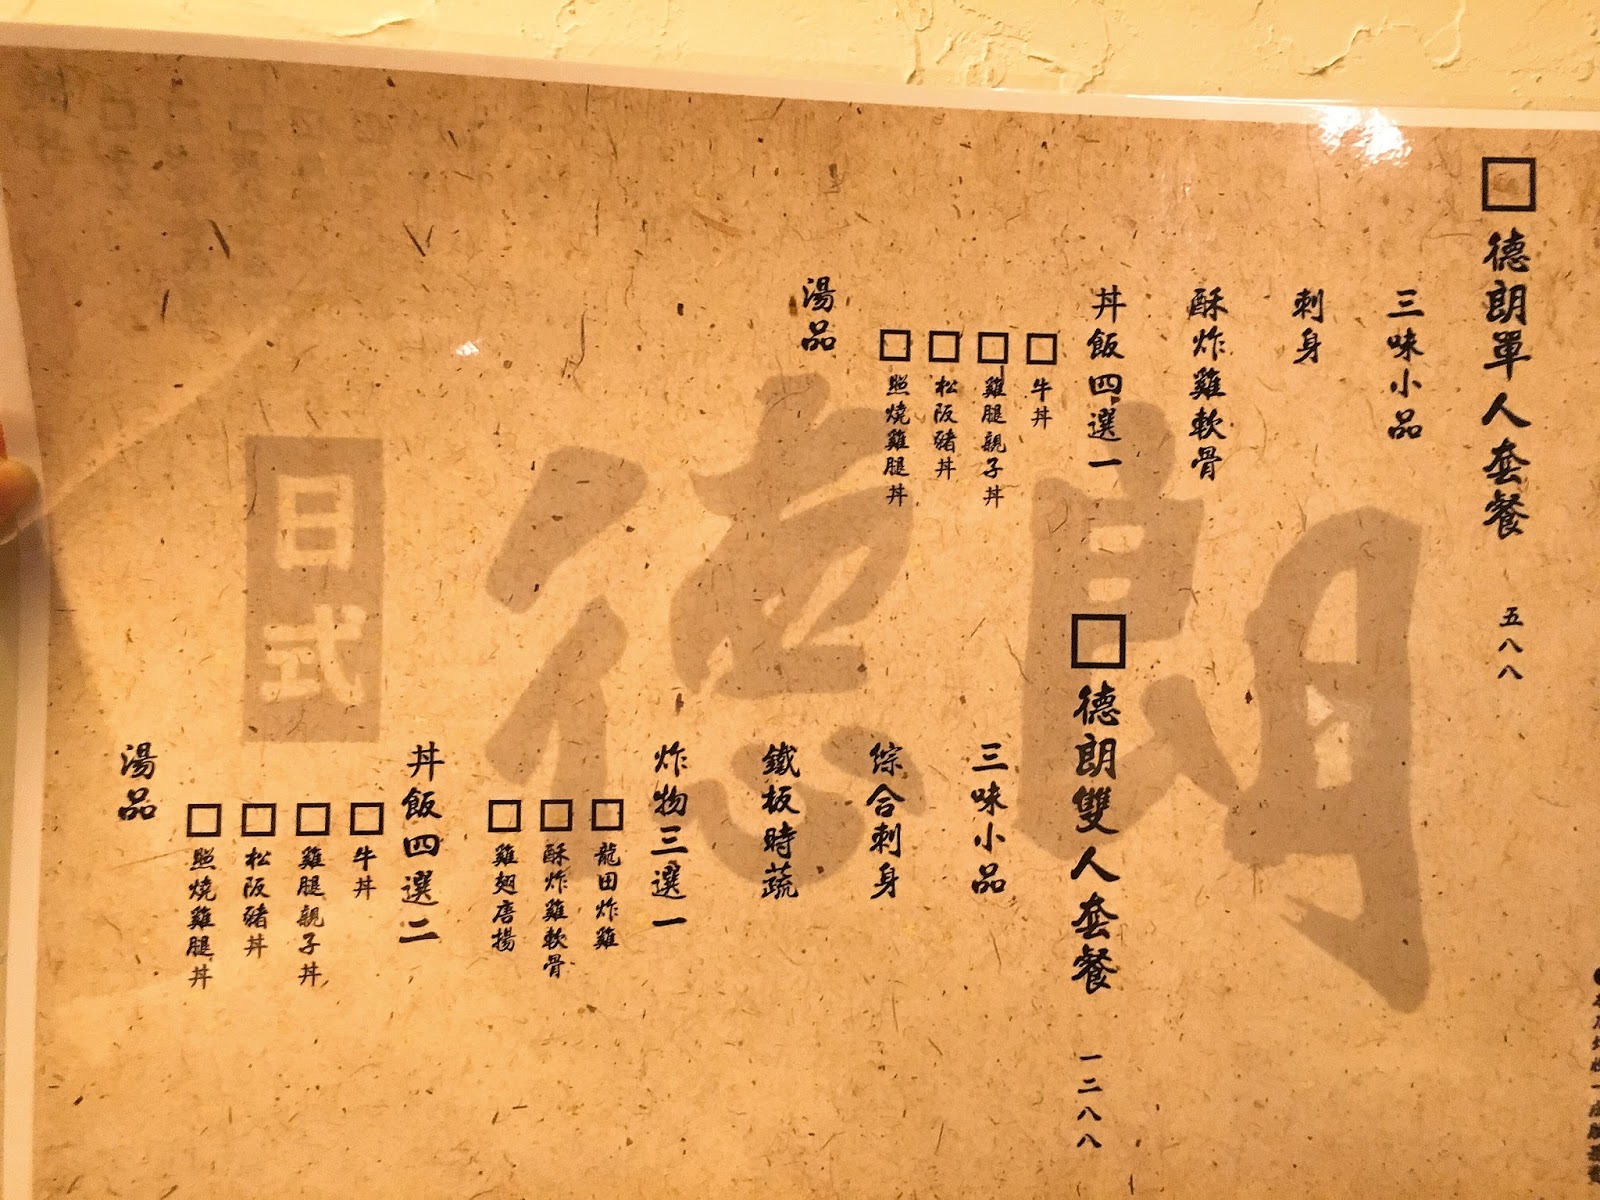 德朗單人套餐 五八八
三味小品
刺身
酥炸雞軟骨
丼飯四選一
牛丼
雞腿親子丼
松阪豬丼
照燒雞腿丼
湯品
德朗雙人套餐 一二八八
三味小品
綜合刺身
鐵板時蔬
炸物三選一
龍田炸雞
酥炸雞軟骨
雞翅唐揚
丼飯四選二
牛丼
雞腿親子丼
松阪豬丼
照燒雞腿丼
湯品
德朗
日式